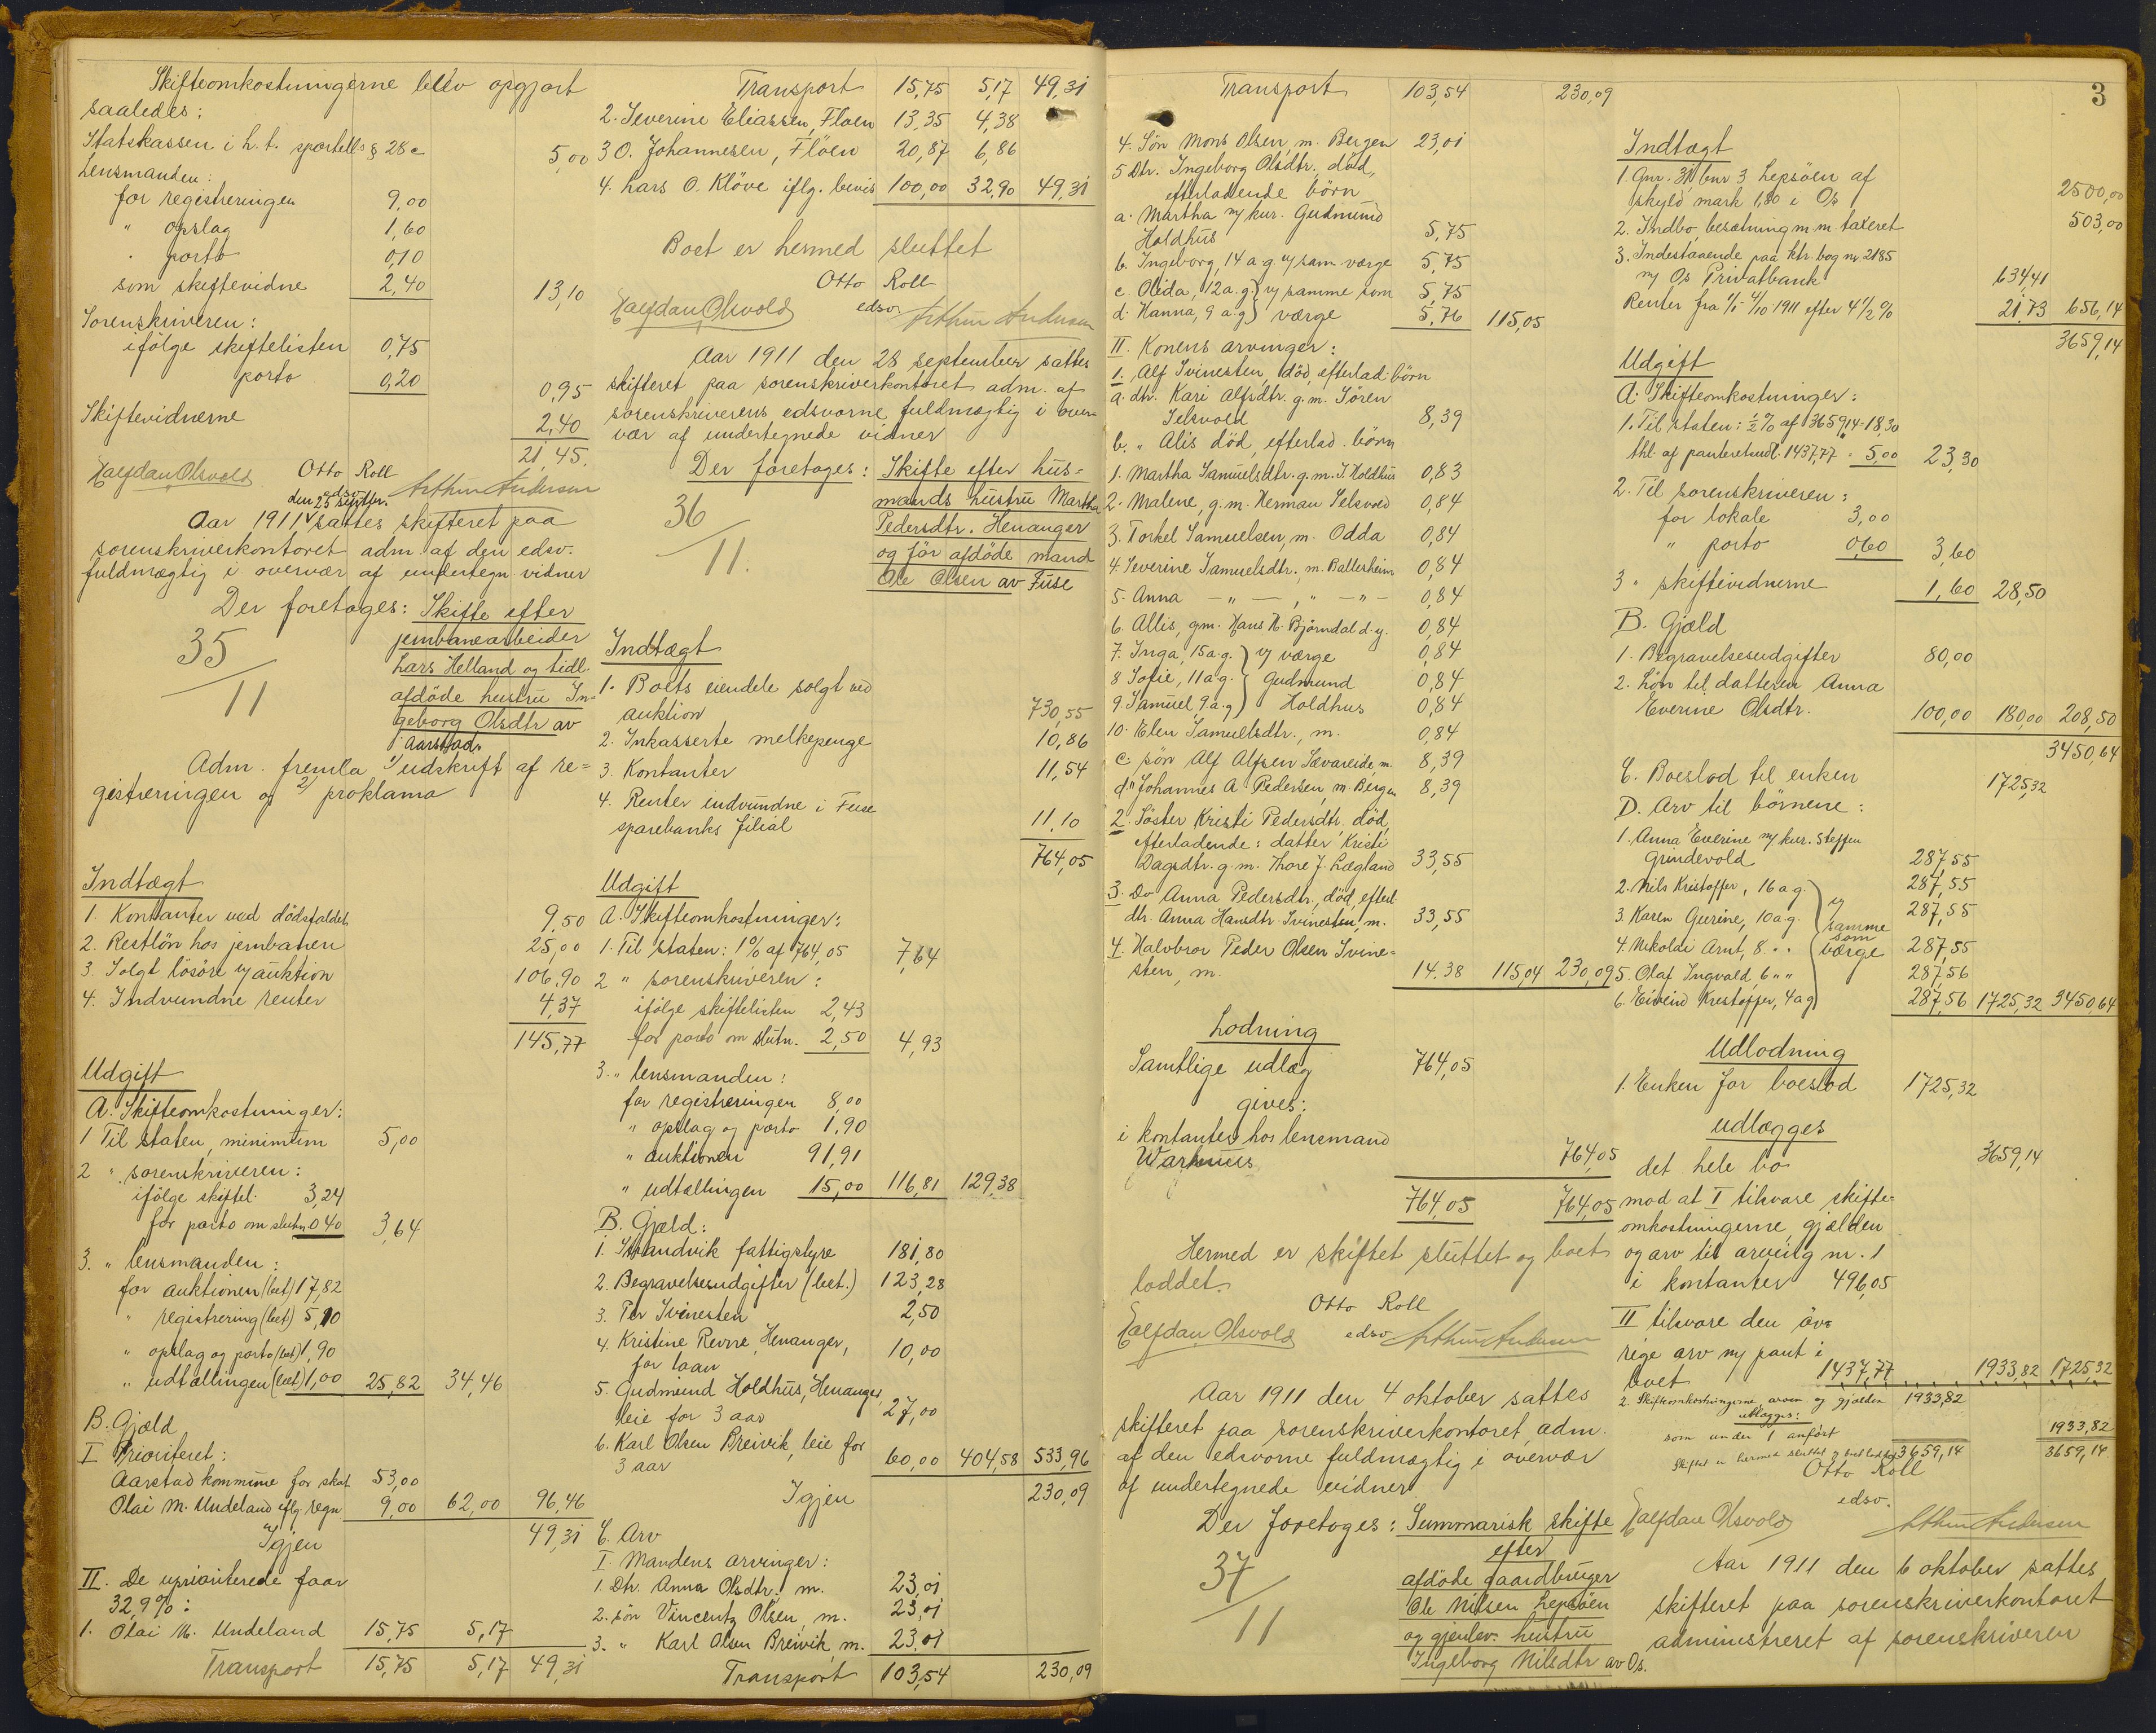 Skifteomkostningerne blev opgjort
saaledes:
Statskassen i h. t. sportells § 28 c 5,00
Lensmanden:
for registreringen 9,00
" opslag 1,60
" porto 0,10
som skiftevidne 2,40 13,10
Sorenskriveren:
ifölge skiftelisten 0,75
porto 0,20 0,95
Skiftevidnerne 2,40
21,45.
Otto Roll
edsv.
Halfdan Olsvold Arthur Andersen
den 25 septbr.
Aar 1911 sattes skifteret paa
sorenskriverkontoret adm. af den edsv.
fuldmægtig i overvær af undertegn vidner
Der foretoges: Skifte efter
35/11
jernbanearbeider
Lars Helland og tidl.
afdöde hustru In-
geborg Olsdtr av
Aarstad.
Adm. fremla 1/ udskrift af re=
gistreringen og 2/ proklama
Indtægt
1. Kontanter ved dödsfaldet 9,50
2. Restlön hos jernbanen 25,00
3. Solgt lösöre v/ auktion 106,90
4. Indvundne renter 4,37
145,77
Udgift
A. Skifteomkostninger:
1 Til staten, minimum 5,00
2 " sorenskriveren:
ifölge skiftel. 3,24
for porto om slutn. 0 40 3,64
3. " lensmanden:
for auktionen (bet) 17,82
" registrering (bet) 5,10
" opslag og porto (bet) 1,90
" udtællingen (bet) 1,00 25,82 34,46
B. Gjæld
I Prioriteret:
Aarstad kommune for skat 53,00
Olai M. Undeland iflg. regn 9,00 62,00 96,46
Igjen 49,31
II. De uprioriterede faar
32,9%:
1. Olai M. Undeland 15,75 5,17
Transport 15,75 5,17 49,31
Transport 15,75 5,17 49,31
2. Severine Eliassen, Floen 13,35 4,38
3 O. Johannesen, Flöen 20,87 6,86
4. Lars O. Klöve iflg. bevis 100,00 32,90 49,31
Boet er hermed sluttet
Otto Roll
edsv.
Halfdan Olsvold Arthur Andersen
Aar 1911 den 28 september sattes
skifteret paa sorenskriverkontoret adm. af
sorenskriverens edsvorne fuldmægtig i over-
vær af undertegnede vidner
Der foretoges: Skifte efter hus=
36/11.
mands hustru Martha
Pedersdtr. Henanger
og för afdöde mand
Ole Olsen av Fuse
Indtægt
1. Boets eiendele solgt ved
auktion 730,55
2. Inkasserte melkepenge 10,86
3. Kontanter 11,54
4. Renter indvundne i Fuse
sparebanks filial 11,10
764,05
Udgift
A. Skifteomkostninger:
1. Til staten: 1% af 764,05 7,64
2 " sorenskriveren:
ifölge skiftelisten 2,43
for porto om slutn. 2,50 4,93
3. " lensmanden:
for registreringen 8,00
" opslag og porto 1,90
" auktionen 91,91
" udtællingen 15,00 116,81 129,38
B. Gjæld:
1. Strandvik fattigstyre 181,80
2. Begravelsesudgifter (bet.) 123,28
3. Per Ivinesten 2,50
4. Kristine Revne, Henanger,
for laan 10,00
5. Gudmund Holdhus, Henanger
leie for 3 aar 27,00
6. Karl Olsen Breivik, leie for
3 aar 60,00 404,58 533,96
Igjen 230,09
C. Arv
I. Mandens arvinger:
1. Dtr. Anna Olsdtr., m. 23,01
2. sön Vincentz Olsen, m. 23,01
3. " Karl Olsen Breivik, m. 23,01
Transport 103,54 230,09
3
Transport 103,54 230,09
4. Sön Mons Olsen, m. Bergen 23,01
5 Dtr. Ingeborg Olsdtr., död,
efterladende börn
a. Martha m/ kur. Gudmund
Holdhus 5,75
b. Ingeborg, 14 a g v/ sam. værge 5,75
c. Olida, 12 a. g } v/ samme som 5,75
d. Hanna, 9 a. g } værge 5,76 115,05
II. Konens arvinger:
1. Alf Ivinesten, död, efterlad. börn
a. dtr. Kari Alfsdtr. g. m. Sören
Selsvold 8,39
b. " Alis död, efterlad. börn
1. Martha Samuelsdtr. g. m. J. Holdhus 0,83
2. Malene, g. m. Herman Selsvold 0,84
3. Torkel Samuelsen, m. Odda 0,84
4. Severine Samuelsdtr., m. Ballersheim 0,84
5. Anna — " — , " — " — 0,84
6. Allis, gm. Hans H. Björndal d. y. 0,84
7. Inga, 15 a. g. } v/ værge 0,84
8 Sofie, 11 a g. } Gudmund 0,84
9. Samuel 9 a. g } Holdhus 0,84
10. Elen Samuelsdtr., m. 0,84
c. sön Alf Alfsen Sævareide, m. 8,39
d. " Johannes A Pedersen, m. Bergen 8,39
2. Söster Kristi Pedersdtr., död,
efterladende: datter Kristi
Dagsdtr. g m. Thore J. Lægland 33,55
3. Do Anna Pedersdtr., död, efterl
dtr. Anna Hansdtr. Ivinesten, m. 33,55
4. Halvbror Peder Olsen Ivine=
sten, m. 14.38 115,04 230,09
Lodning
Samtlige udlæg 764,05
gives:
i kontanter hos lensmand
Warhuus 764,05
764,05 764,05
Hermed er skiftet sluttet og boet
loddet.
Otto Roll
edsv.
Halfdan Olsvold Arthur Andersen
Aar 1911 den 4 oktober sattes
skifteret paa sorenskriverkontoret, adm.
af den edsvorne fuldmægtig i overvær
af undertegnede vidner
Der foretoges: Summarisk skifte
37/11
efter
afdöde gaardbruger
Ole Nilsen Lepsöen
og gjenlev. hustru
Ingeborg Nilsdtr av Os.
Indtægt
1. Gnr. 31 bnr 3 Lepsöen af
skyld mark 1,80 i Os 2500,00
2. Indbo, besætning m. m. taxeret 503,00
3. Indestaaende paa ktr. bog nr 2185
m/ Os Privatbank 634,41
Renter fra 1/1 - 4/10 1911 efter 4 1/2 % 21,73 656,14
3659,14
Udgift
A. Skifteomkostninger:
1. Til staten: 1/2 % af 3659,14 - 18,30
thl. af panteretsudl. 1437,77 = 5,00 23,30
2. Til sorenskriveren:
for lokale 3,00
" porto 0,60 3,60
3 " skiftevidnerne 1,60 28,50
B. Gjæld
1. Begravelsesudgifter 80,00
2. Lön til datteren Anna
Everine Olsdtr. 100,00 180,00 208,50
3450,64
C. Boeslod til enken 1725,32
D. Arv til börnene:
1. Anna Everine m/ kur. Steffen
Grindevold 287,55
2. Nils Kristoffer, 16 a g. } v/ 287,55
3. Karen Gurine, 10 a. g. } samme 287,55
4. Nikolai Arnt, 8 " " } som værge 287,55
5. Olaf Ingvald, 6 " " 287,56
6. Eivind Kristoffer, 4 a g 287,56 1725,32 3450,64
Udlodning
1. Enken for boeslod 1725,32
udlægges
det hele bo 3659,14
mod at I tilsvare skifte-
omkostningerne, gjælden
og arv til arving nr. 1
i kontanter 496,05
II tilsvare den öv-
rige arv m/ pant i
boet 1437,77 1933,82 1725,32
2. Skifteomkostningerne, arven og gjælden 1933,82
udlægges:
som under 1 anfört 1933,82
Skiftet er hermed sluttet og boet loddet 3659,14 3659,14
Otto Roll
edsv.
Halfdan Olsvold Arthur Andersen
Aar 1911 den 6 oktober sattes
skifteret paa sorenskriverkontoret
administreret af sorenskriveren